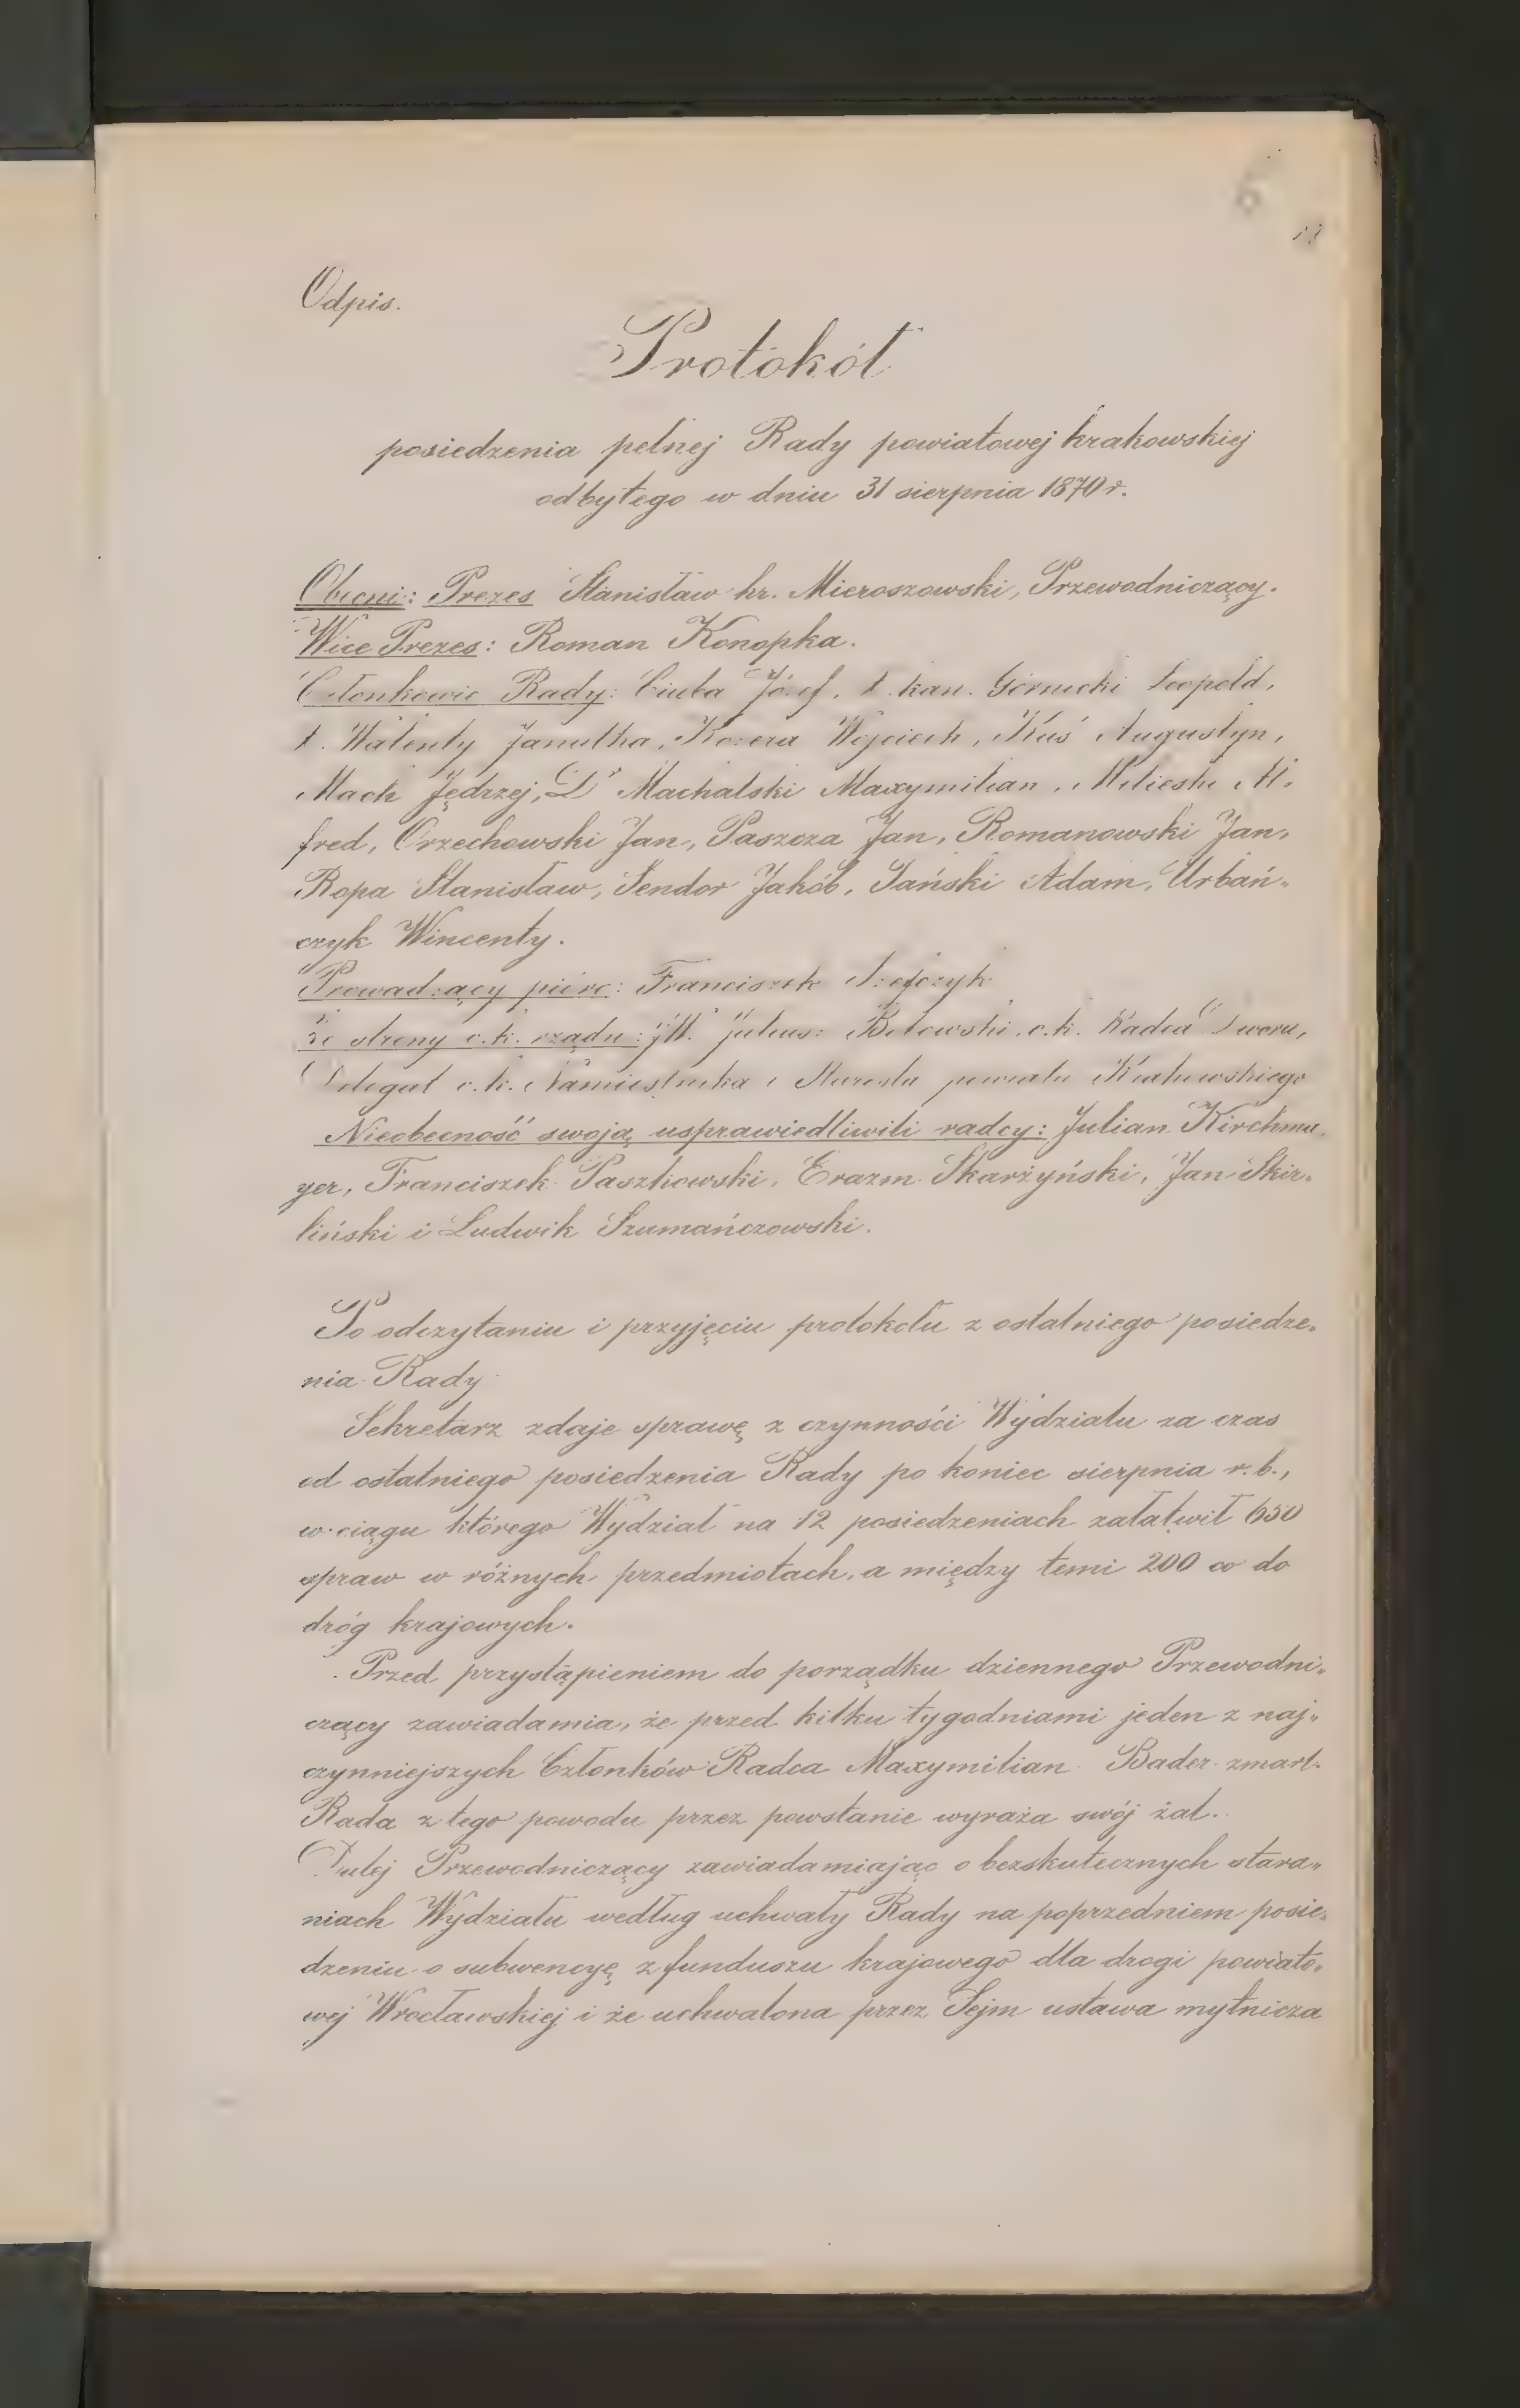 Odpis.
Protokół
posiedzenia pełnej Rady powiatowej krakowskiej
odbytego w dniu 31 sierpnia 1870 r.
Obecni: Prezes Stanisław hr. Mieroszowski, Przewodniczący.
Wice Prezes: Roman Konopka.
Członkowie Rady: Ciuba Józef, X. kan. Górnicki Leopold,
X. Walenty Janutka, Kozera Wojciech, Kuś Augustyn,
Mach Jędrzej, Dr Machalski Maxymilian, Milieski Al-
fred, Orzechowski Jan, Paszcza Jan, Romanowski Jan,
Ropa Stanisław, Sendor Jakób, Tański Adam, Urbań-
czyk Wincenty.
Prowadzący pióro: Franciszek
Ze strony c.k. rządu: JW. c.k. Radca Dworu,
Delegat c.k. Namiestnika i Starosta powiatu Krakowskiego
Nieobecność swoją usprawiedliwili radcy: Julian Kirchma-
yer, Franciszek Paszkowski, Erazm Skarżyński, Jan Skir-
liński i Ludwik Szumańczowski.
Po odczytaniu i przyjęciu protokołu z ostatniego posiedze-
nia Rady
Sekretarz zdaje sprawę z czynności Wydziału za czas
od ostatniego posiedzenia Rady po koniec sierpnia r. b.,
w ciągu którego Wydział na 12 posiedzeniach załatwił 650
spraw w różnych przedmiotach, a między temi 200 co do
dróg krajowych.
Przed przystąpieniem do porządku dziennego Przewodni-
czący zawiadamia, że przed kilku tygodniami jeden z naj-
czynniejszych Członków Radca Maxymilian Bader zmarł.
Rada z tego powodu przez powstanie wyraża swój żal.
Dalej Przewodniczący zawiadamiając o bezskutecznych stara-
niach Wydziału według uchwały Rady na poprzedniem posie-
dzeniu o subwencyę z funduszu krajowego dla drogi powiato-
wej Wrocławskiej i że uchwalona przez Sejm ustawa mytnicza